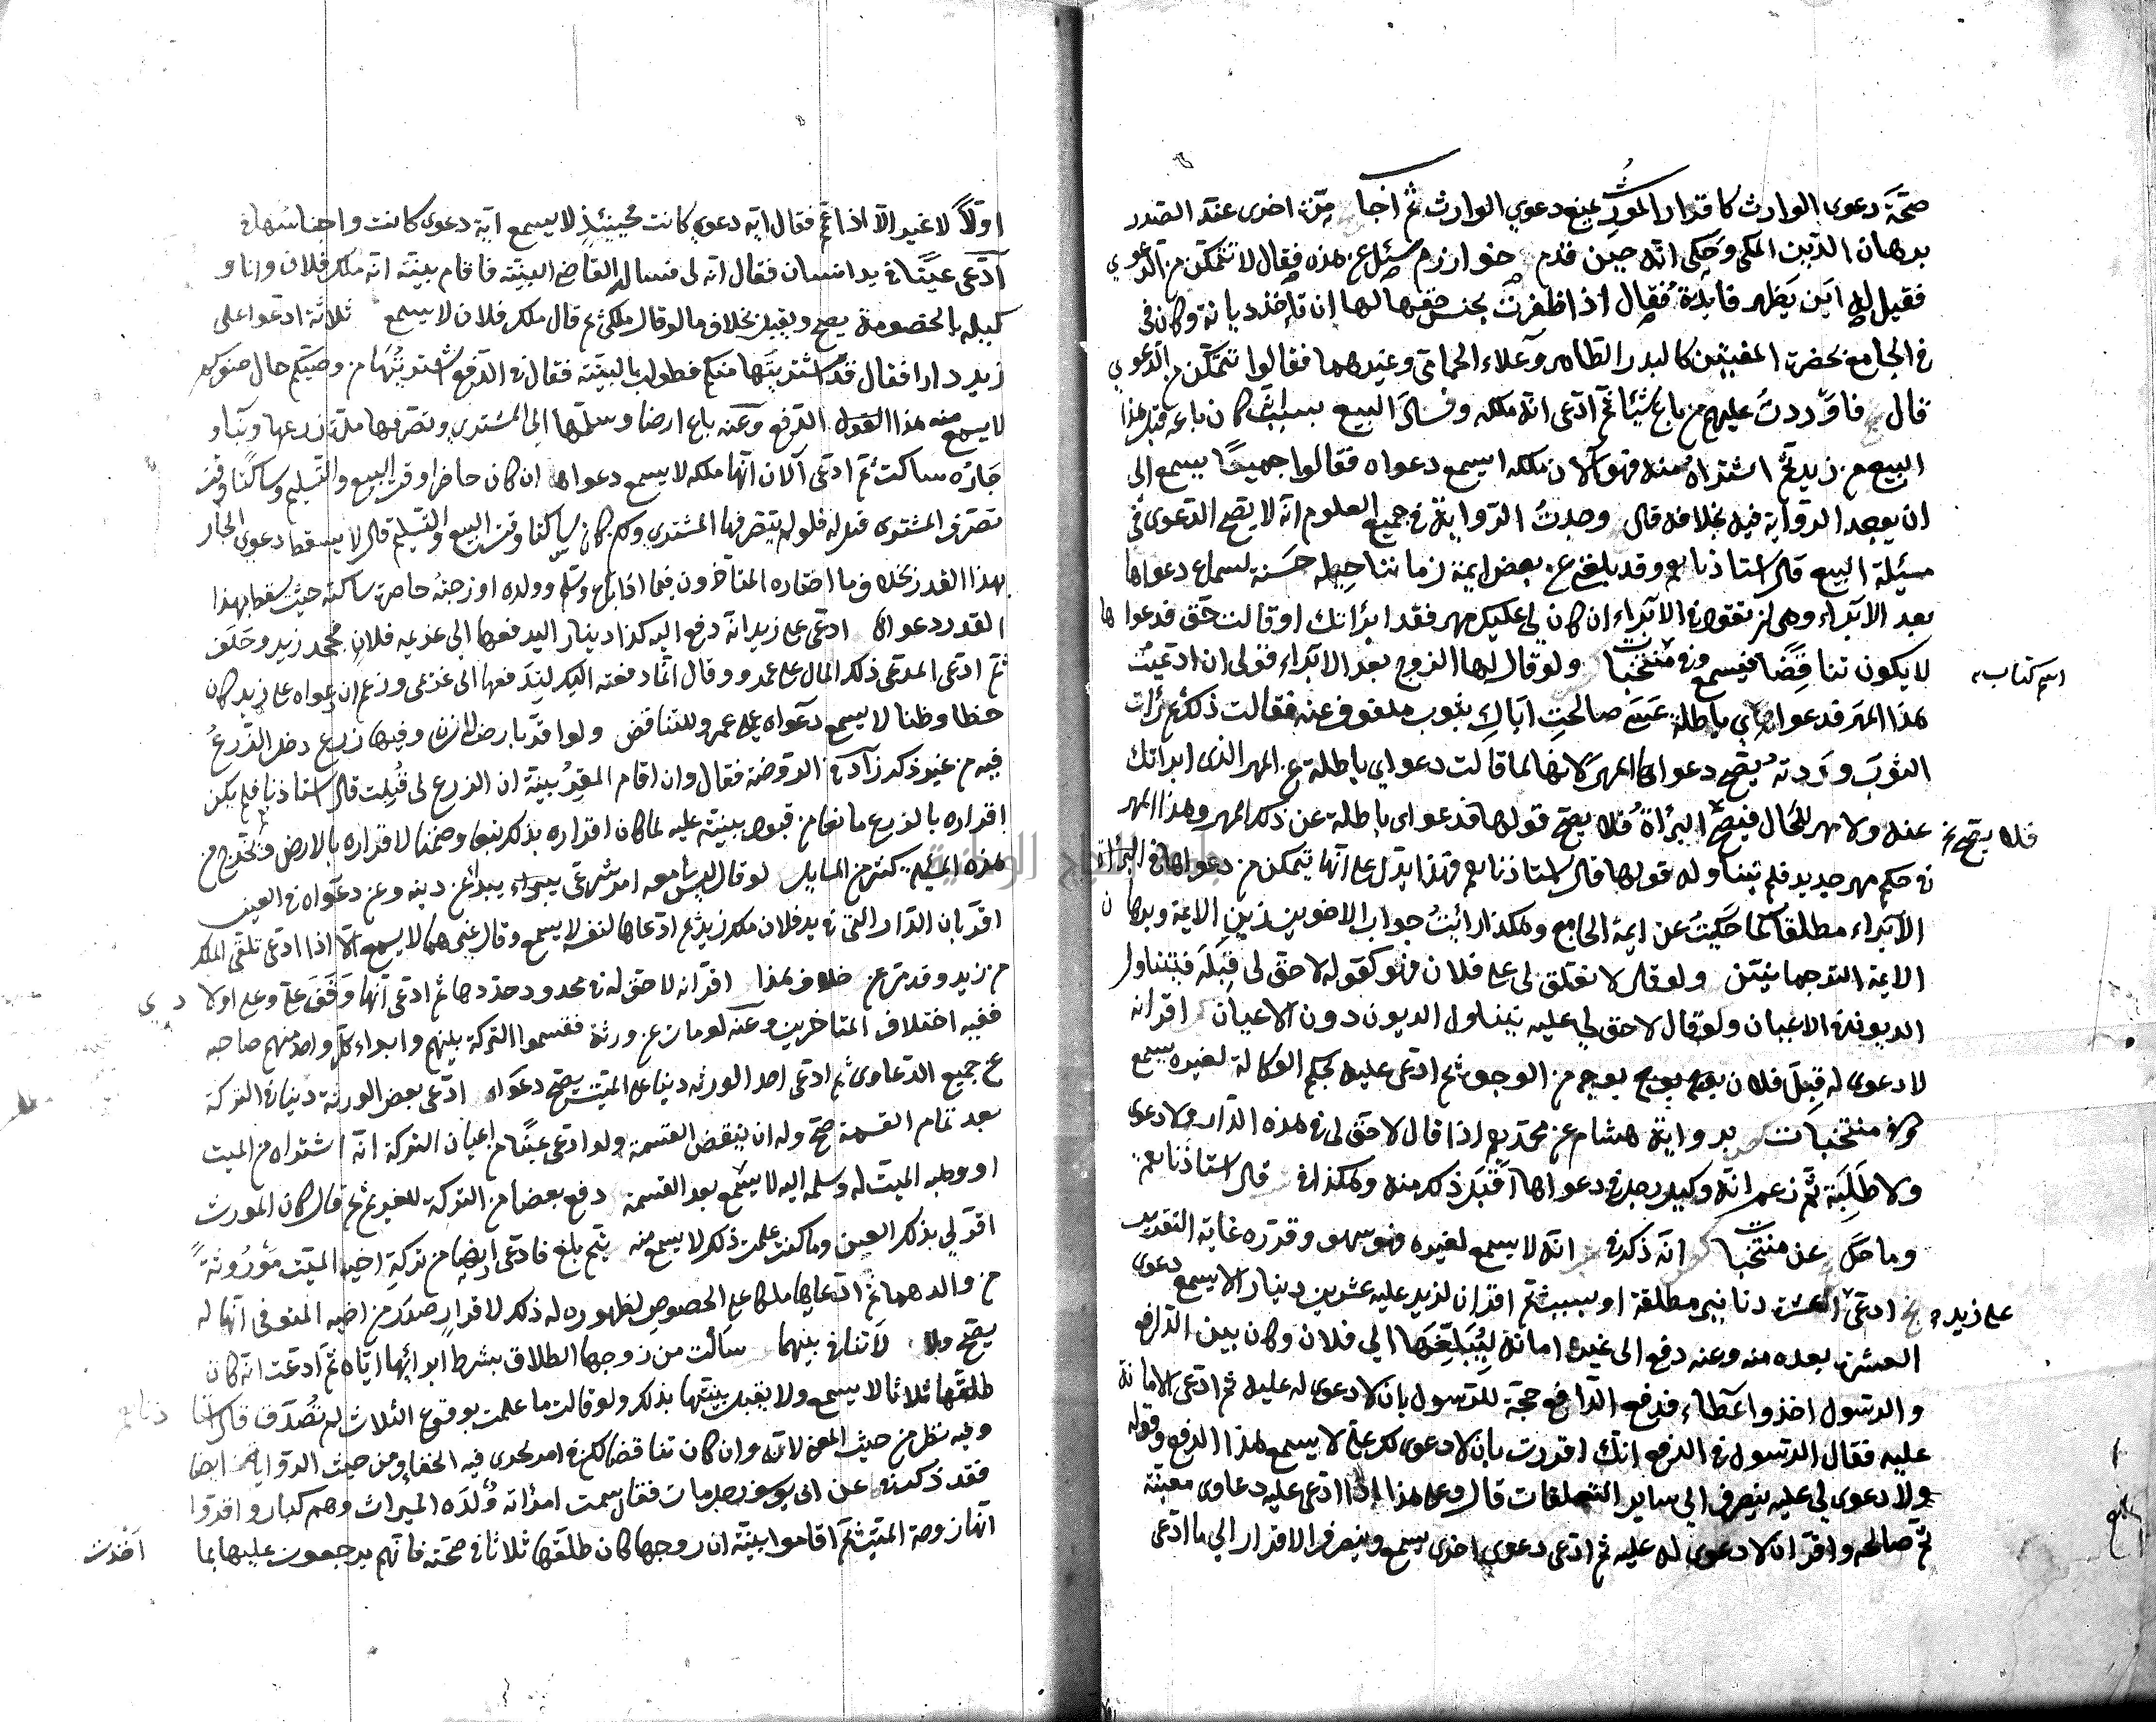 صحّة دعوى الوارث كاقرار المورّث يمنع دعوي الوارث ثم اجا مرّة اخرى عند الصدر
برهان الدين المكى وحكى انّه حين قدم خوارزم سئل عن هذه فقال لا تتمكّن من الدعوي
فقيل له اين يظهر فايدة فقال اذا ظفرت بجنس حقها لها ان تاخذ ديانة وكان فى
فى الجامع بحضرة المفيتين كالبدر الطاهر وعلاء الحمامى وغيرهما فقالوا تتمكّن من الدعوي
قال فاوردت عليهم من باع شيئا ثم ادّعى انّه ملكه وفساد البيع بسبب انّه كان باعه قبل هذا
البيع من زيد ثم اشتراه منه فهو الان ملكه ايسمع دعواه فقالوا جميعا يسمع الى
ان يوجد الرواية فيه بخلافه قال وجدت الرواية فى جميع العلوم انه لا يصح الدعوى فى
مسئلة البيع قال استاذنا يع وقد بلغنى عن بعض ايمة زماننا حيلة حسنة لسماع دعواها
بعد الابراء وهى ان تقول فى الابراء ان كان لى عليك مهر فقد ابراتك او قالت حق فدعواها
لا يكون تناقضا فيسمع وفى منتخبات ولو قال لها الزوج بعد الابراء قولى ان ادّعيت
اسم كتاب
هذا المهر فدعواي باطلة عسى صالحت اباك بثوب ملفوف عنه فقالت ذلك ثم رات
الثوب وردته يصح دعواها المهر لانها لما قالت دعواي باطلة عن المهر الذى ابراتك
عنه ولا مهر للحال فيصح البراة فلا يصح قولها فدعواى باطلة عن ذلك المهر وهذا المهر
فلا يصح
فى حكم مهر جديد فلم يتناوله قولها قال استاذنا يع فهذا يدل على انها تتمكن من دعواها فى البراة
الابراء مطلقا كما حكيت عن ايمة الجامع وهكذا رايت جواب الاخوين زين الايمة وبرهان
الايمة الترجمانيين ولو قال لا تعلق لى على فلان فهو كقوله لا حق لى قبله فيتناول
الديون والاعيان ولو قال لا حق لى عليه يتناول الديون دون الاعيان اقر انه
لا دعوى له قبل فلان بوجه من الوجوه ثم ادعى عليه بحكم الوكالة لغيره يسمع
وفى منتخبات برواية هشام عن محمد يع اذا قال لا حق لى فى هذه الدار ولا دعوى
ولا طلبة ثم زعم انه وكيل رجل فى دعواها اقبل ذلك منه وهكذا فى قال استاذنا يع
وما حكى عن منتخبات انّه ذكر فى انّه لا يسمع لغيره فهو سهو وقرره غاية التقرير
ادعى العشرة دنانير مطلقة او بسبب ثم اقر ان لزيد عليه عشرين دينارا لا يسمع دعوى
على زيد
العشرة بعده منه وعنه دفع الى غيره امانة ليبلغها الى فلان وكان بين الدافع
والرسول اخذ واعطاء فدفع الدافع حجة للرسول بان لا دعوى له عليه ثم ادعى الامانة
عليه فقال الرسول فى الدفع انك اقررت بان لا دعوى لك على لا يسمع هذا الدفع وقوله
ولا دعوى لى عليه ينصرف الى ساير التعلقات قال وعلى هذا اذا ادعى عليه دعاوى معينة
ثم صالحه واقر ان لا دعوى له عليه ثم ادعى دعوى اخرى يسمع وينصرف الاقرار الى ما ادعى
اوّلا لا غير الّا اذا عمّ فقال ايّة دعوي كانت فحينئذ لا يسمع ايّة دعوى كانت واجناسها
ادّعى عينا فى يد انسان فقال انه لى فساله القاضى البيّنة فاقام بيّنة انه ملك فلان وانا و
كيله بالخصومة يصح ويقبل بخلاف ما لو قال ملكى ثم قال ملك فلان لا يسمع ثلاثة ادعوا على
زيد دارا فقال قد اشتريتها منكم فطولب بالبيّنة فقال فى الدفع اشتريتها من وصيّكم حال صغركم
لا يسمع منه هذا القول الدفع وعنه باع ارضا وسلمها الى المشتري وتصرفها مدة زرعها وبناء و
جاره ساكت ثم ادعى الان انها ملكه لا يسمع دعواه ان كان حاضرا وقت البيع والتسليم وساكتا وقت
تصرف المشترى قبله فلو لم يتصرفها المشتري وكان ساكتا وقت البيع والتسليم قال لا يسقط دعوي الجار
بهذا القدر بخلاف ما اختاره المتاخرون فيما اذا باع وسلم وولده او زوجته حاضرة ساكتة حيث يسقط بهذا
القدر دعواه ادعى على زيد انه دفع اليه كذا دينارا ليدفعها الى غريمه فلان فجحد زيد وحلف
ثم ادعى المدعى ذلك المال على عمرو وقال انما دفعته اليك لتدفعها الى غريمى وزعم ان دعواه على زيد كان
خطا وظنا لا يسمع دعواه على عمرو للتناقض ولو اقر بارض لانسان وفيها زرع دخل الزرع
فيه من غير ذكر زاد فى الروضة فقال وان اقام المقر بينة ان الزرع لى قبلت قال استاذنا فلم يكن
اقراره بالزرع مانعا من قبول بينته عليه لما كان اقراره بذلك تبعا وضمنا لاقراره بالارض وتخرج من
هذه المسئلة كثير من المسايل لو قال ليس معه امر شرعى يبرا عن دينه وعن دعواه فى العين
اقر بان الدار التى فى يد فلان ملك زيد ثم ادعاها لنفسه لا يسمع وقال غيرهما لا يسمع الا اذا ادعى تلقى الملك
من زيد وقد مر عن خلاف هذا اقر انه لا حق له فى محدود حددها ثم ادعى انها وقف على وعلى اولادى
ففيه اختلاف المتاخرين وعنه لو مات عن ورثة فقسموا التركة بينهم وابراء كل واحد منهم صاحبه
عن جميع الدعاوى ثم ادعى احد الورثة دينا على الميت يصح دعواه ادعى بعض الورثة دينا فى التركة
بعد تمام القسمة صح وله ان ينقض القسمة ولو ادعى عينا من اعيان التركة انه اشتراه من الميت
او وهبه الميت له وسلمه اليه لا يسمع بعد القسمة دفع بعضا من التركة للغير ثم قال كان المورث
اقر لي بذلك العين وما كنت علمت ذلك لا يسمع منه يتيم بلغ فادعى ارضا من تركة اخيه الميت موروثة
من والدهما ثم ادعاها ملكا على الخصوص لظهوره له ذلك لاقرار صدر من اخيه المتوفى انها له
يصح ولا تنافى بينهما سالت من زوجها الطلاق بشرط ابرائها اياه ثم ادعت انه كان
طلقها ثلاثا لا يسمع ولا يقبل بينتها بذلك ولو قالت ما علمت بوقوع الثلاث لم تصدق قال استاذنا يع
وفيه نظر من حيث المعنى لانه وان كان تناقضا لكن فى امر يجرى فيه الخفاء ومن حيث الرواية ايضا
فقد ذكر فى عن ابى يوسف رجل مات فقسمت امراته وولده الميراث وهم كبار واقروا
انها زوجة الميت ثم اقاموا بينة ان زوجها كان طلقها ثلاثا فى صحته فانهم يرجعون عليها بما
اخذت